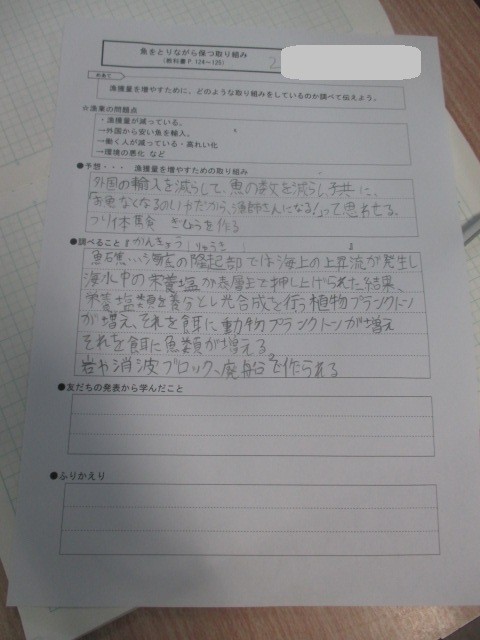 魚をとりながら保つ取り組み
(教科書P.124~125)
2
めあて
漁獲量を増やすために、どのような取り組みをしているのか調べて伝えよう。
☆漁業の問題点
・漁獲量が減っている。
→外国から安い魚を輸入。
→働く人が減っている・高れい化
→環境の悪化 など
●予想・・・ 漁獲量を増やすための取り組み
外国の輸入を減らして、魚の数を減らし、子共に、
「お魚なくなるのいやだから、漁師さんになる!」って思わせる。
つり体験 ぎじょうを作る
●調べること かんきょう りゅうき
魚礁 の隆起部では海上の上昇流が発生し
海水中の栄養塩が表層まで押し上げられた結果、
栄養塩類を養分とし光合成を行う植物プランクトン
が増え、それを餌に動物プランクトンが増え
それを餌に魚類が増える
岩や消波ブロック、廃船で作られる
●友だちの発表から学んだこと
●ふりかえり